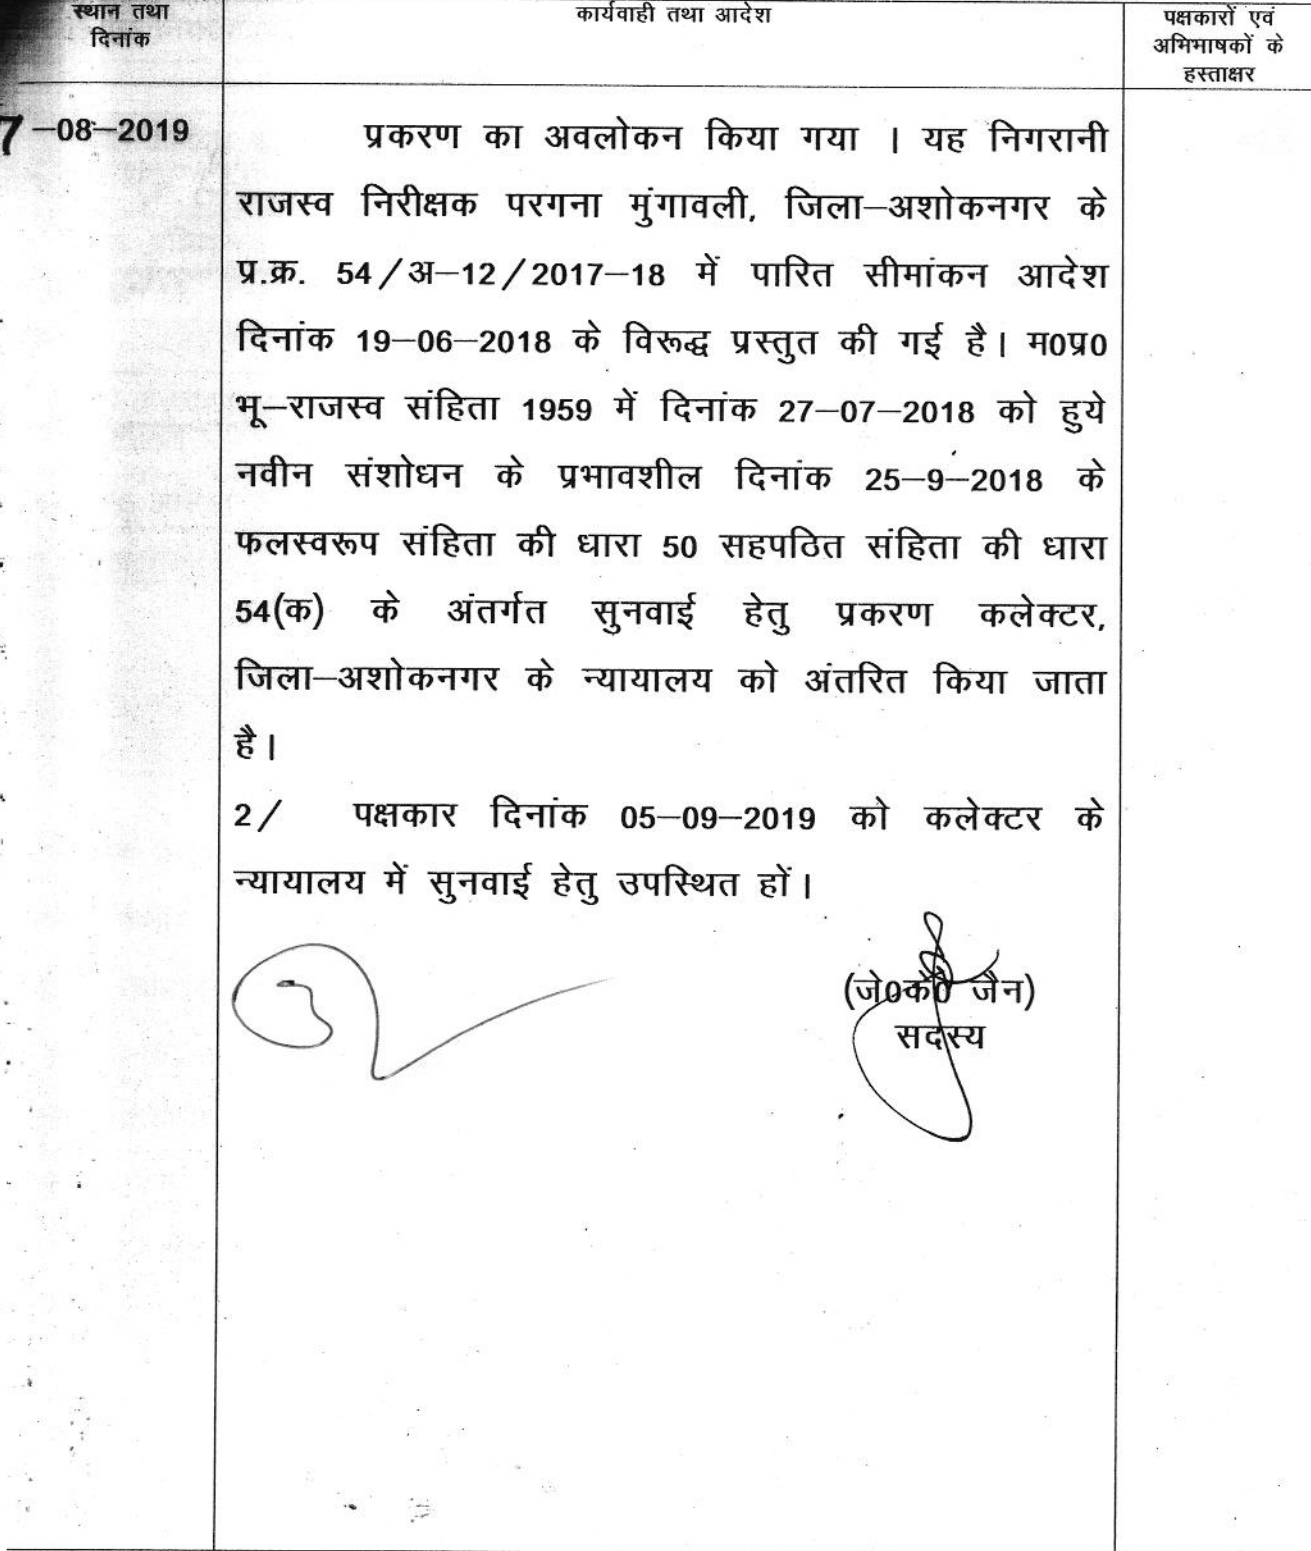 स्थान तथा
दिनांक
कार्यवाही तथा आदेश
पक्षकारों एवं
अभिभाषकों के
हस्ताक्षर
7-08-2019
प्रकरण का अवलोकन किया गया । यह निगरानी
राजस्व निरीक्षक परगना मुंगावली, जिला-अशोकनगर के
प्र.क्र. 54/अ-12/2017-18 में पारित सीमांकन आदेश
दिनांक 19-06-2018 के विरूद्ध प्रस्तुत की गई है। म0प्र0
भू-राजस्व संहिता 1959 में दिनांक 27-07-2018 को हुये
नवीन संशोधन के प्रभावशील दिनांक 25-9-2018 के
फलस्वरूप संहिता की धारा 50 सहपठित संहिता की धारा
54(क) के अंतर्गत सुनवाई हेतु प्रकरण कलेक्टर,
जिला-अशोकनगर के न्यायालय को अंतरित किया जाता
है।
2/ पक्षकार दिनांक 05-09-2019 को कलेक्टर के
न्यायालय में सुनवाई हेतु उपस्थित हों।
(जे0के0 जैन)
सदस्य